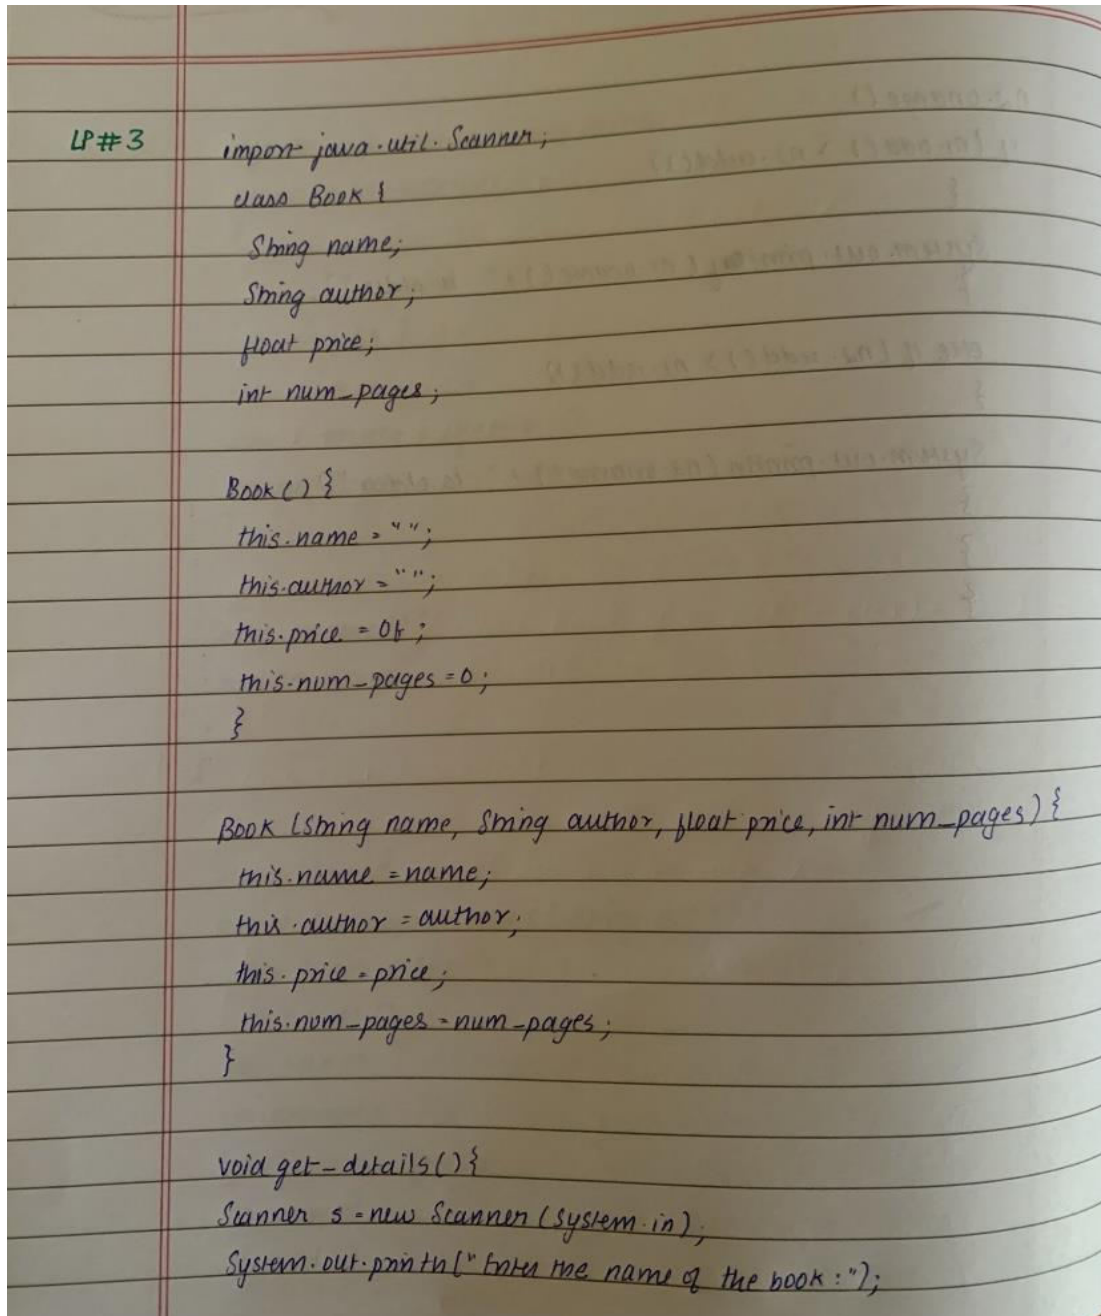 LP#3 import java.util.Scanner;
class Book {
String name;
String author;
float price;
int num_pages;
Book () {
this.name = "";
this.author = "";
this.price = 0f;
this.num_pages = 0;
}
Book (String name, String author, float price, int num_pages) {
this.name = name;
this.author = author;
this.price = price;
this.num_pages = num_pages;
}
void get_details() {
Scanner s = new Scanner (System.in);
System.out.println(" Enter the name of the book : ");